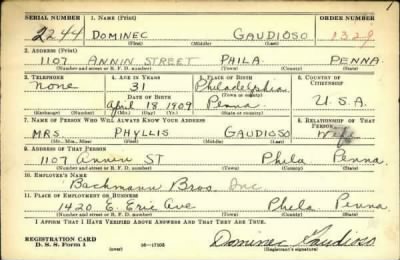 SERIAL NUMBER 1. NAME (Print) ORDER NUMBER
2244 DOMINEC GAUDIOSO 1329
(First) (Middle) (Last)
2. ADDRESS (Print)
1107 ANNIN STREET PHILA. PENNA.
(Number and street or R. F. D. number) (Town) (County) (State)
3. TELEPHONE 4. AGE IN YEARS 5. PLACE OF BIRTH 6. COUNTRY OF CITIZENSHIP
None 31 Philadelphia
DATE OF BIRTH (Town or county)
April 18 1909 Penna. U.S.A.
(Exchange) (Number) (Mo.) (Day) (Yr.) (State or country)
7. NAME OF PERSON WHO WILL ALWAYS KNOW YOUR ADDRESS 8. RELATIONSHIP OF THAT PERSON
MRS. PHYLLIS GAUDIOSO Wife
(Mr., Mrs., Miss) (First) (Middle) (Last)
9. ADDRESS OF THAT PERSON
1107 Annin ST Phila Penna.
(Number and street or R. F. D. number) (Town) (County) (State)
10. EMPLOYER'S NAME
Bachmann Bros. Inc
11. PLACE OF EMPLOYMENT OR BUSINESS
1420 E. Erie Ave Phila Penna
(Number and street or R. F. D. number) (Town) (County) (State)
I AFFIRM THAT I HAVE VERIFIED ABOVE ANSWERS AND THAT THEY ARE TRUE.
REGISTRATION CARD
D. S. S. Form 1 (over) 16—17105 Dominec Gaudioso
(Registrant's signature)